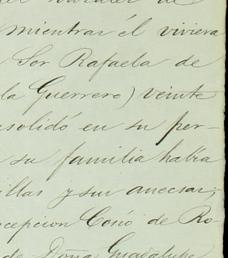 mientras él viviera
Sor Rafaela de
la Guerrero) veinte
solidó en su per-
su familia habia
illas y sus anecsas;
cepcion Cosío de Ro-
de Doña Guadalupe